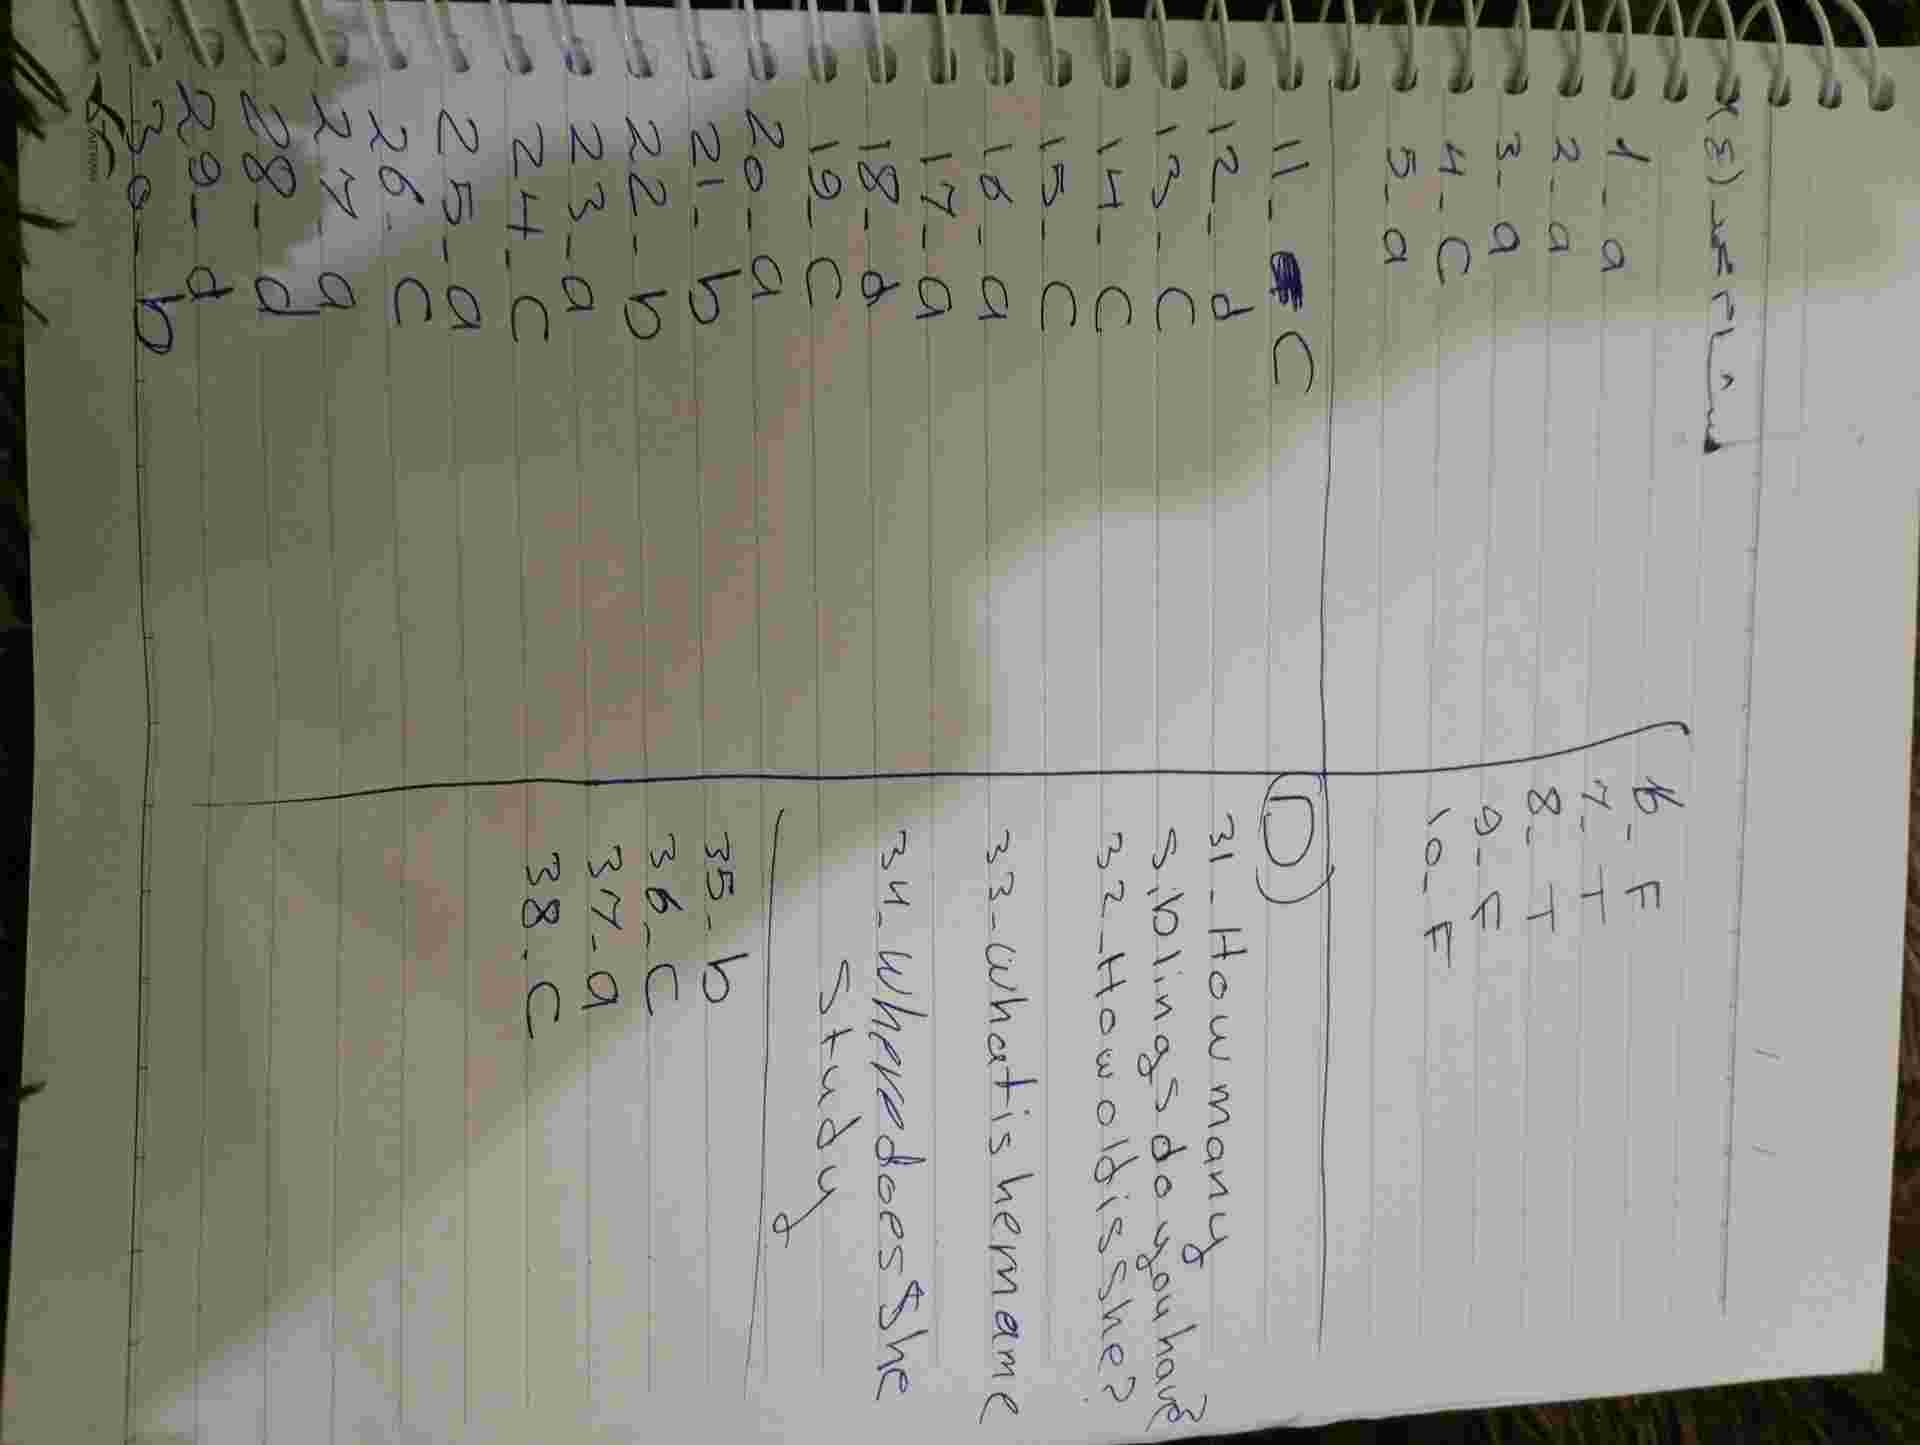 1_a
2_a
3_a
4_C
5_a
6_F
7_T
8_T
9_F
10_F
11_C
12_d
13_C
14_C
15_C
16_a
17_a
18_d
19_C
20_a
21_b
22_b
23_a
24_C
25_a
26_C
27_a
28_d
29_d
30_b
D
31_How many
siblings do you have?
32_How old is she?
33_What is her name
34_Where does she
study
35_b
36_C
37_a
38_C